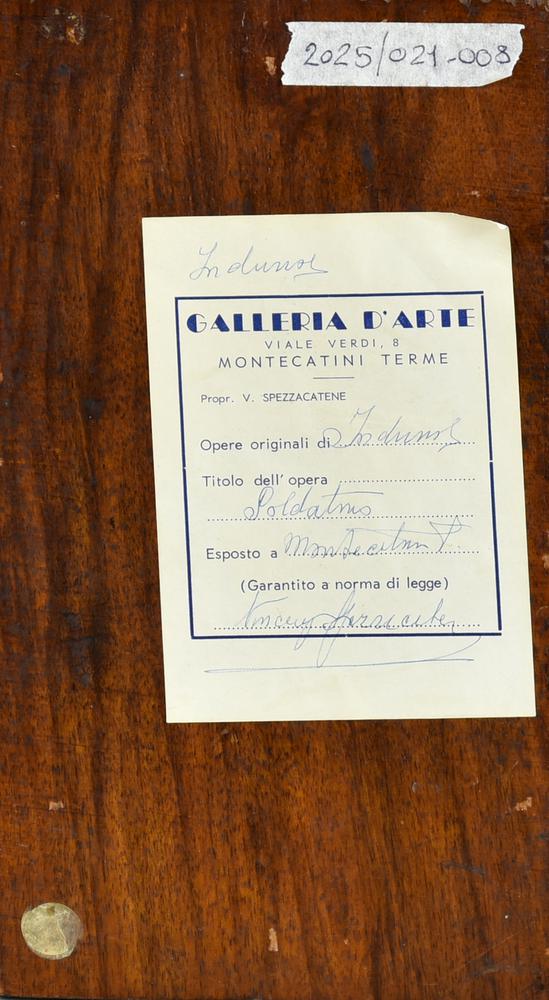 2025/021-008
Induno
GALLERIA D'ARTE
VIALE VERDI, 8
MONTECATINI TERME
Propr. V. SPEZZACATENE
Opere originali di Induno
Titolo dell'opera
Soldatino
Esposto a Montecatini T.
(Garantito a norma di legge)